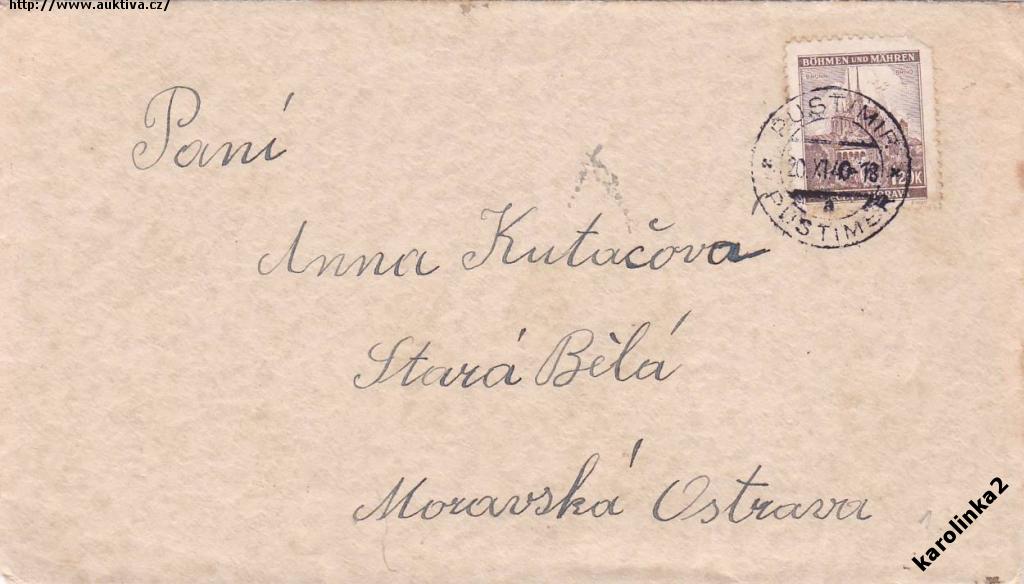 http://www.auktiva.cz/
BÖHMEN UND MÄHREN
PUSTIMIR
20.XI.40-18
1.20K
a
PUSTIMĚŘ
Paní
Anna Kutačova
Stará Bělá
Moravská Ostrava
karolinka2